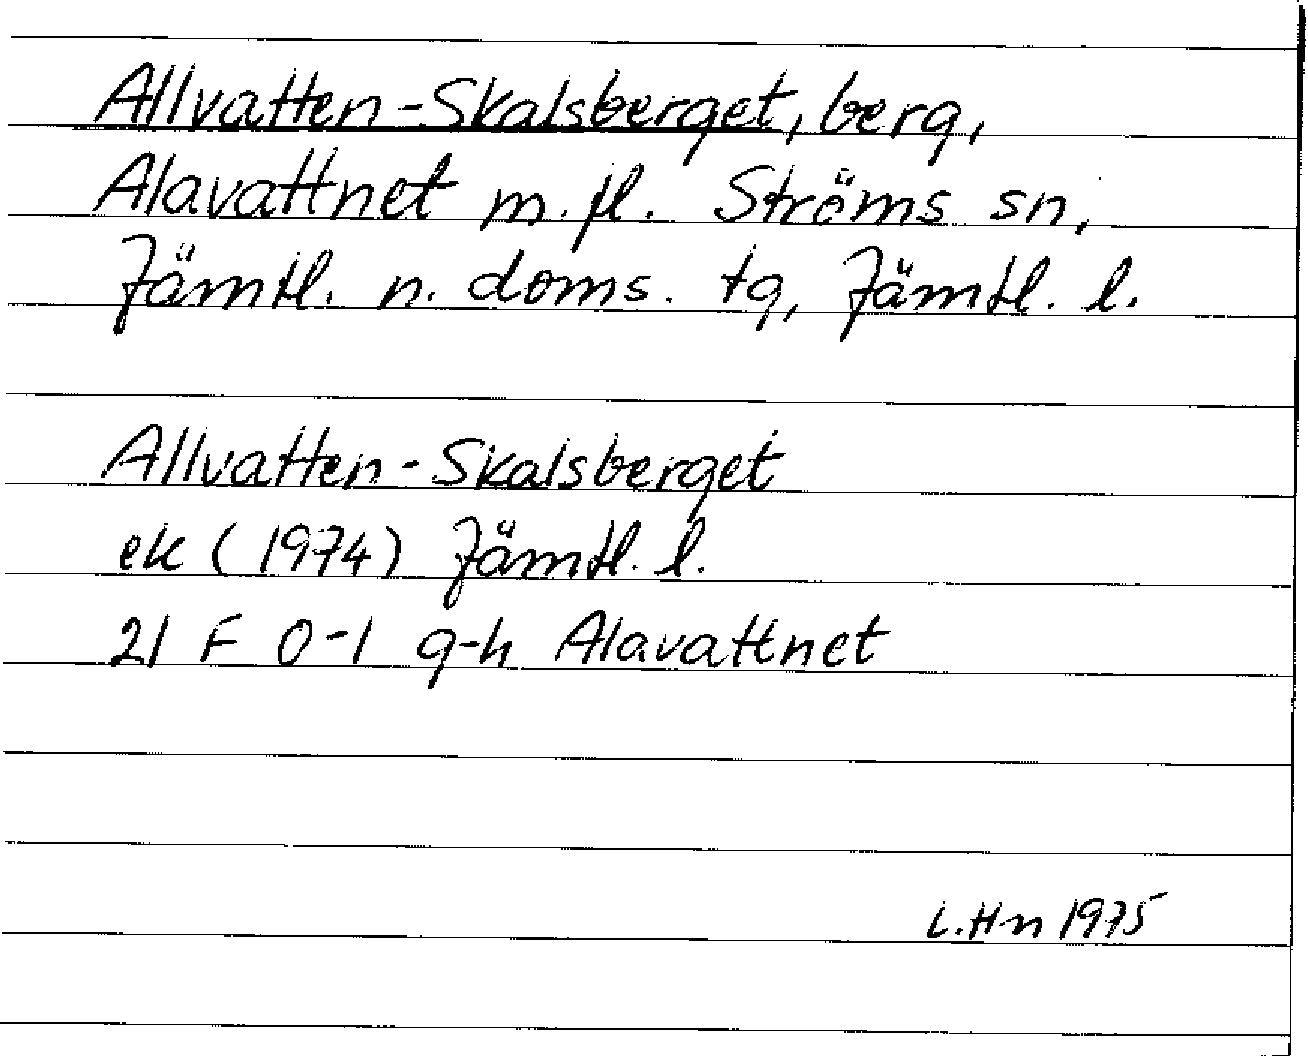 Allvatten-Skalsberget, berg,
Alavattnet m.fl. Ströms sn,
Jämtl. n. doms. tg, Jämtl. l.
Allvatten-Skalsberget
ek (1974) Jämtl. l.
21 F 0-1 g-h Alavattnet
L.Hn 1975